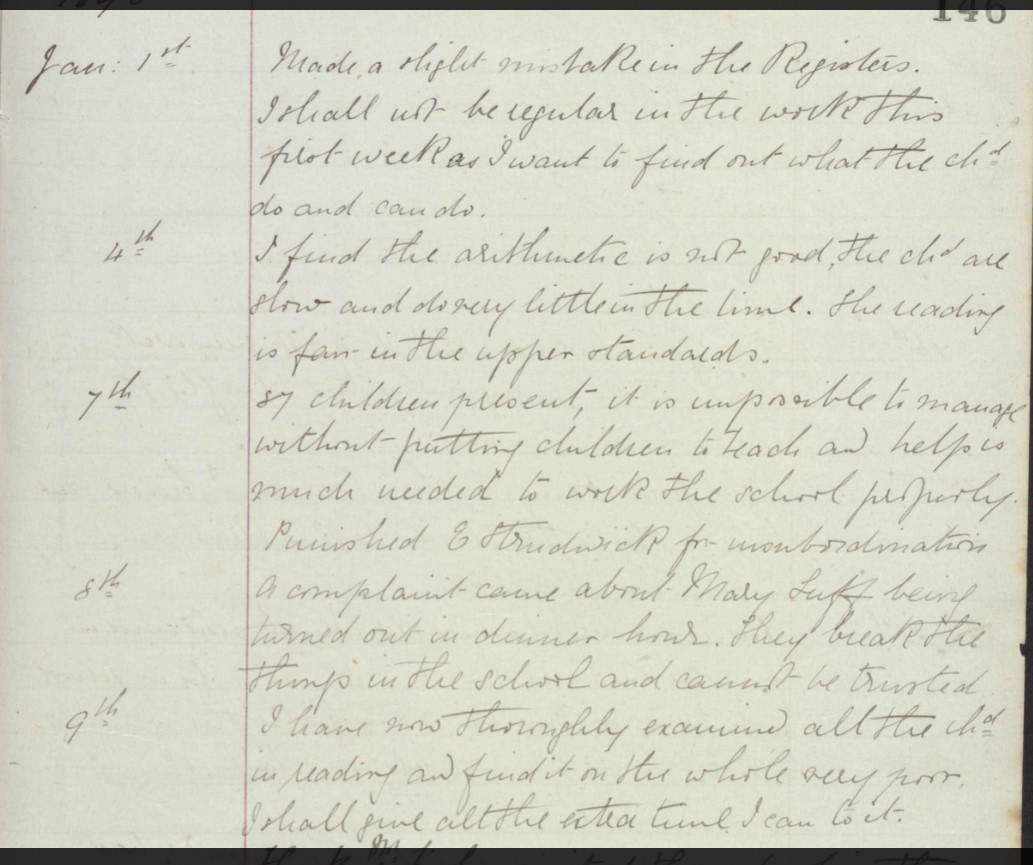 146
Jan: 1st Made a slight mistake in the Registers.
I shall not be regular in the work this
first week as I want to find out what the chd
do and can do.
4th I find the arithmetic is not good, the chd are
slow and do very little in the time. The reading
is fair in the upper standards.
7th 87 children present, it is impossible to manage
without putting children to teach and help is
much needed to work the school properly.
Punished E Strudwick for insubordination
8th A complaint came about Mary Luff being
turned out in dinner hour. They break the
things in the school and cannot be trusted
9th I have now thoroughly examined all the chd
in reading and find it on the whole very poor.
I shall give all the extra time I can to it.